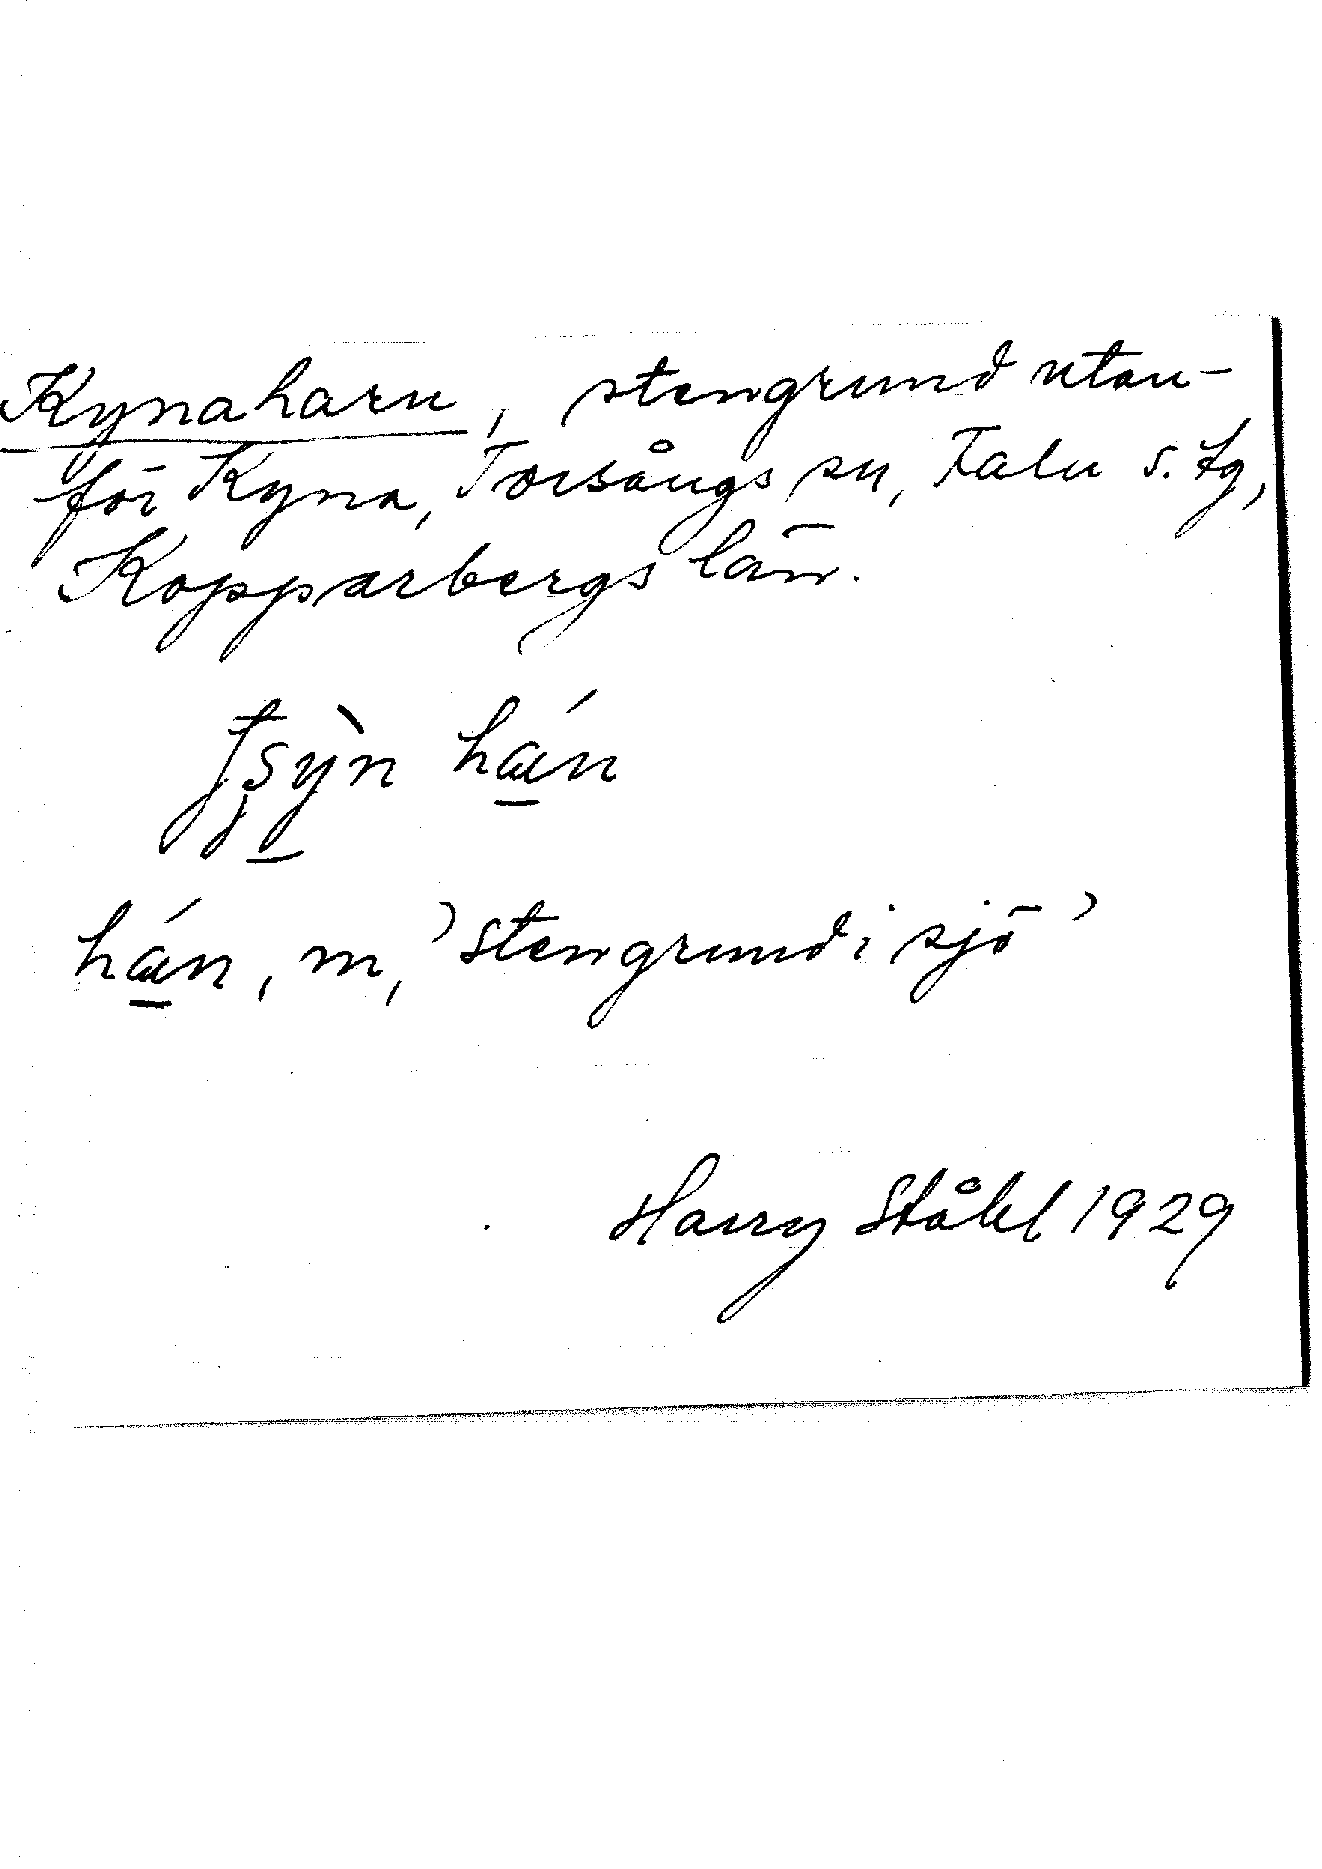 Kynaharn, stengrund utan-
för Kyna, Torsångs sn, Falu s. tg,
Kopparbergs län.
hán, m, 'stengrund i sjö'
Harry Ståhl 1929